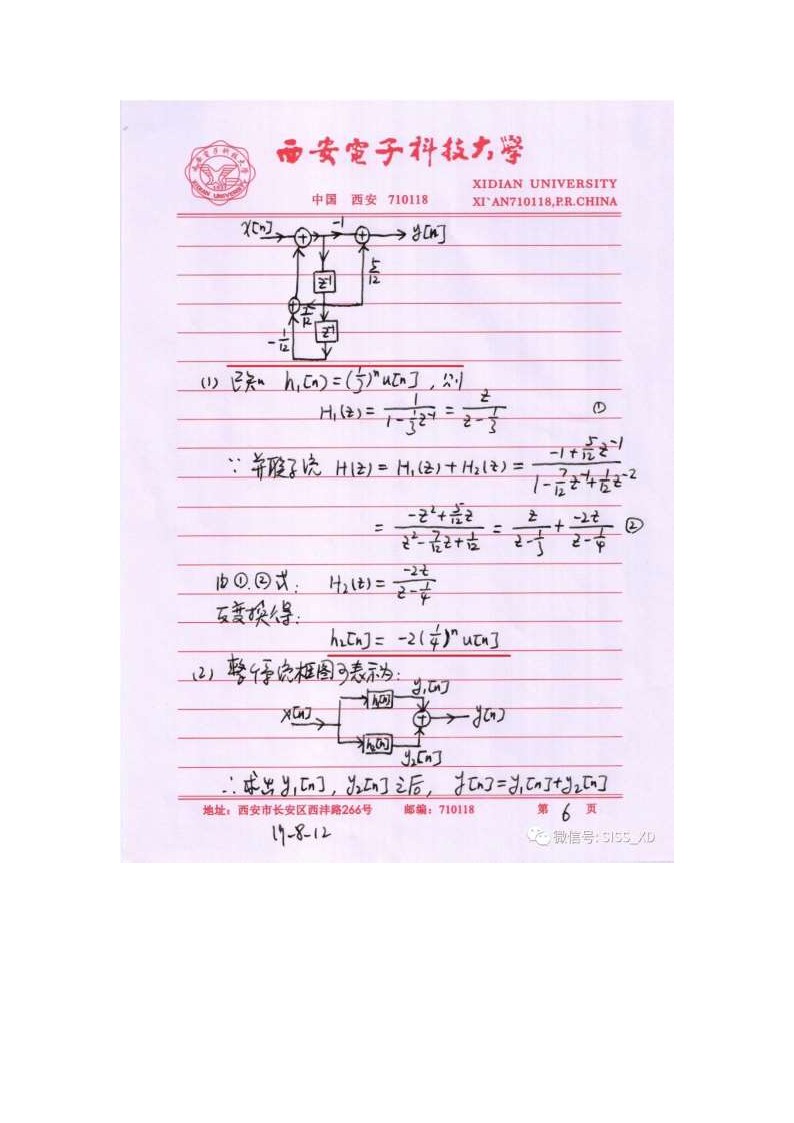 西安電子科技大學
XIDIAN UNIVERSITY
中国 西安 710118 XI`AN710118,P.R.CHINA
x[n] + -1 + y[n]
5/12
z⁻¹
+ 7/12
z⁻¹
-1/12
(1) 已知 h₁[n]=(1/3)ⁿu[n], 则
H₁(z)= 1/(1-1/3z⁻¹) = z/(z-1/3) ①
∵ 并联系统 H(z)=H₁(z)+H₂(z)= (-1+5/12z⁻¹)/(1-7/12z⁻¹+1/12z⁻²)
= (-z²+5/12z)/(z²-7/12z+1/12) = z/(z-1/3) + -2z/(z-1/4) ②
由①.②式: H₂(z)= -2z/(z-1/4)
反变换得:
h₂[n]= -2(1/4)ⁿu[n]
(2) 整个系统框图可表示为:
h₁[n] y₁[n]
x[n] + y[n]
h₂[n] y₂[n]
∴求出y₁[n], y₂[n]之后, y[n]=y₁[n]+y₂[n]
地址: 西安市长安区西沣路266号 邮编: 710118 第 6 页
17-8-12 微信号: SISS_XD